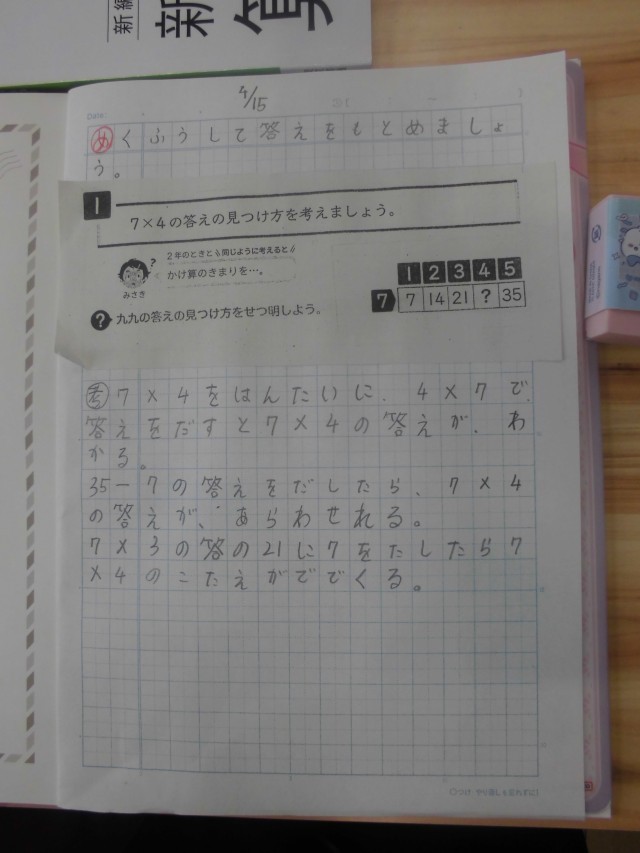 新編
新
算
Date
4/15
め くふうして答えをもとめましょ
う。
1
7×4の答えの見つけ方を考えましょう。
2年のときと同じように考えると
かけ算のきまりを…。
みさき
? 九九の答えの見つけ方をせつ明しよう。
1 2 3 4 5
7 7 14 21 ? 35
考 7×4をはんたいに、4×7で、
答えをだすと7×4の答えが、わ
かる。
35-7の答えをだしたら、7×4
の答えが、あらわせれる。
7×3の答の21に7をたしたら7
×4のこたえがででくる。